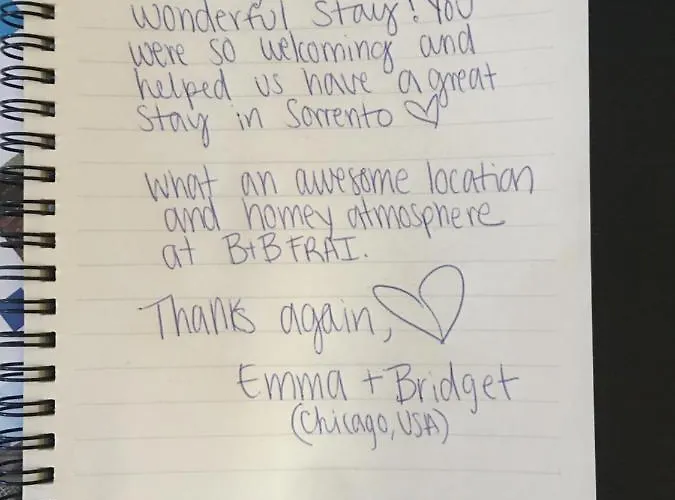 wonderful stay! You
were so welcoming and
helped us have a great
stay in Sorrento ♡
What an awesome location
and homey atmosphere
at B+B FRAI.
Thanks again, ♡
Emma + Bridget
(Chicago, USA)